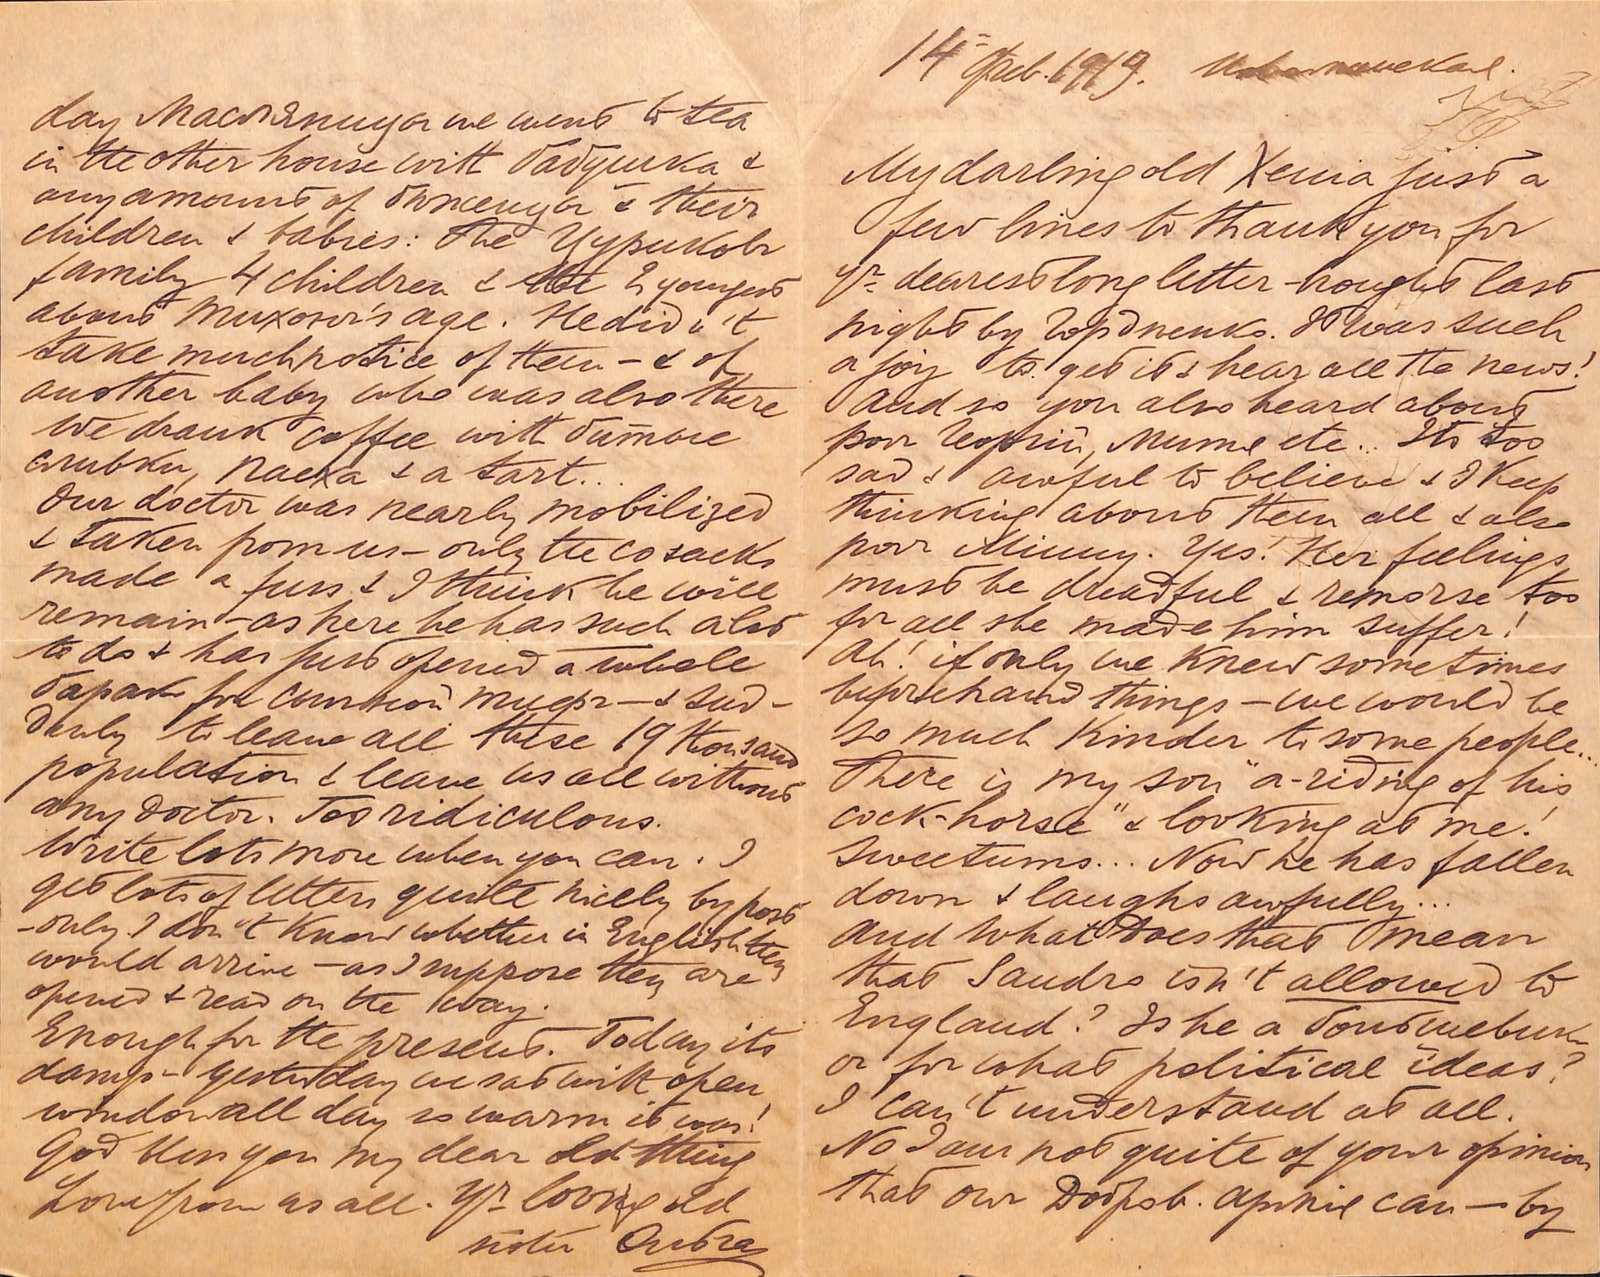 14= Февр. 1919.
My darling old Xenia just a
few lines to thank you for
yr= dearest long letter brought last
night by
It was such
a joy to get it & hear all the news!
And so you also heard about
poor Георгий, Mume etc... Its too
sad & awful to believe & I keep
thinking about them all & also
poor Minny. Yes! Her feelings
must be dreadful & remorse too
for all she made him suffer!
Ah! if only we knew sometimes
beforehand things – we would be
so much kinder to some people...
There is my son "a-riding of his
cock-horse" & looking at me!
Sweetums... Now he has fallen
down & laughs awfully...
And what does that mean
that Sandro isn't allowed to
England? Is he a
or for what political "ideas?
I can't understand at all.
No I am not quite of your opinion
that our Добров. армия can – by
day Масляница we went to tea
in the other house with бабушка &
any amount of & their
children & babies: the Чуриковъ
family 4 children & the 2 youngest
about Тихон's age. He didn't
take much notice of them – & of
another baby who was also there
We drank coffee with
сливки, пасха & a tart...
Our doctor was nearly mobilized
& taken from us – only the cosacks
made a fuss & I think he will
remain – as here he has such a lot
to do & has just opened a whole
баракъ for тифъ – & sud-
denly to leave all these 19 thousand
population & leave us all without
any Doctor. Too ridiculous.
Write lots more when you can. I
get lots of letters quite nicely by post
– only I don't know whether in English they
would arrive – as I suppose they are
opened & read on the way.
Enough for the present. Today its
damp – yesterday we sat with open
window all day so warm it was!
God bless you my dear old thing
Love from us all. Yr= loving old
sister Ольга